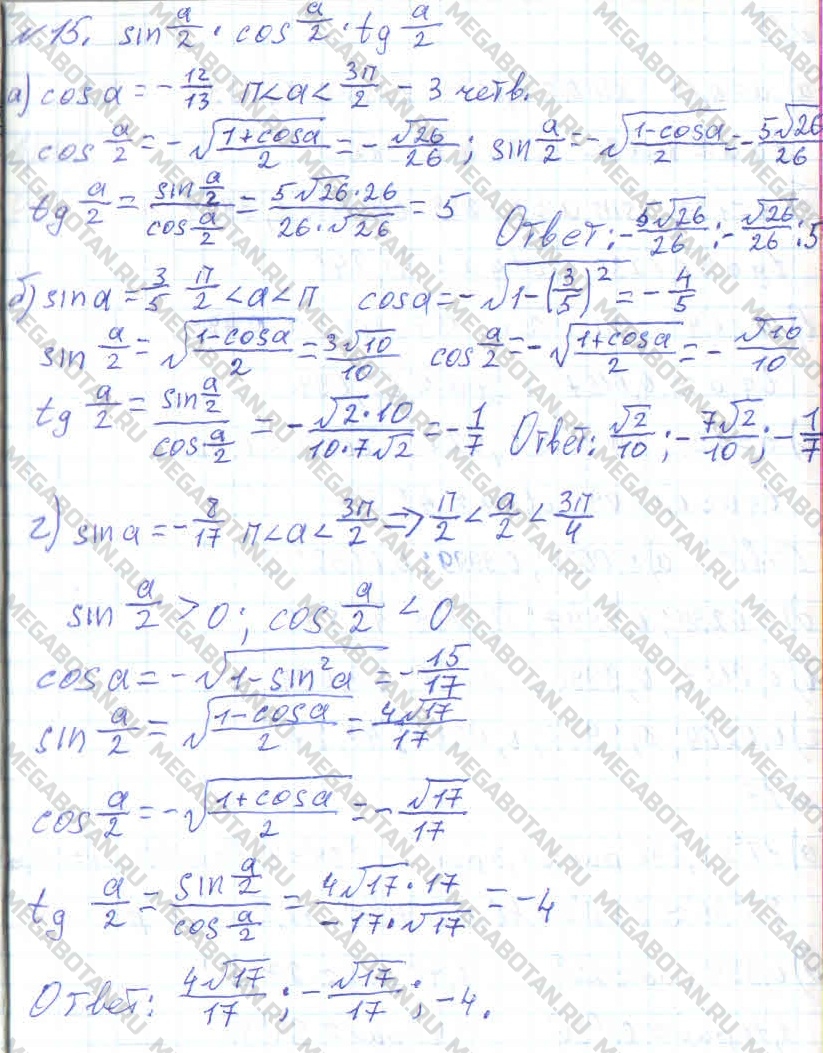 №15. sin a/2 · cos a/2 · tg a/2
а) cos a = -12/13 π<a<3π/2 - 3 четв.
cos a/2 = -√((1+cosa)/2) = -√26/26; sin a/2 = -√((1-cosa)/2) = -5√26/26
tg a/2 = (sin a/2)/(cos a/2) = (5√26·26)/(26·√26) = 5 Ответ: -5√26/26; -√26/26; 5
б) sin a = 3/5 π/2 <a<π cosa = -√(1-(3/5)²) = -4/5
sin a/2 = √((1-cosa)/2) = 3√10/10 cos a/2 = -√((1+cosa)/2) = -√10/10
tg a/2 = (sin a/2)/(cos a/2) = -(√2·10)/(10·7√2) = -1/7 Ответ: √2/10; -7√2/10; -1/7
г) sin a = -8/17 π<a<3π/2 ⇒ π/2 < a/2 < 3π/4
sin a/2 > 0; cos a/2 < 0
cos a = -√(1-sin²a) = -15/17
sin a/2 = √((1-cosa)/2) = 4√17/17
cos a/2 = -√((1+cosa)/2) = -√17/17
tg a/2 = (sin a/2)/(cos a/2) = (4√17·17)/(-17·√17) = -4
Ответ: 4√17/17; -√17/17; -4.
MEGABOTAN.RU